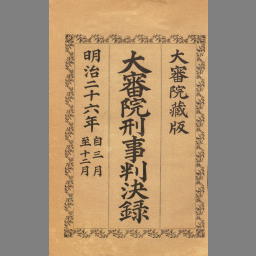 大審院藏版
大審院刑事判決録
明治二十六年自三月至十二月